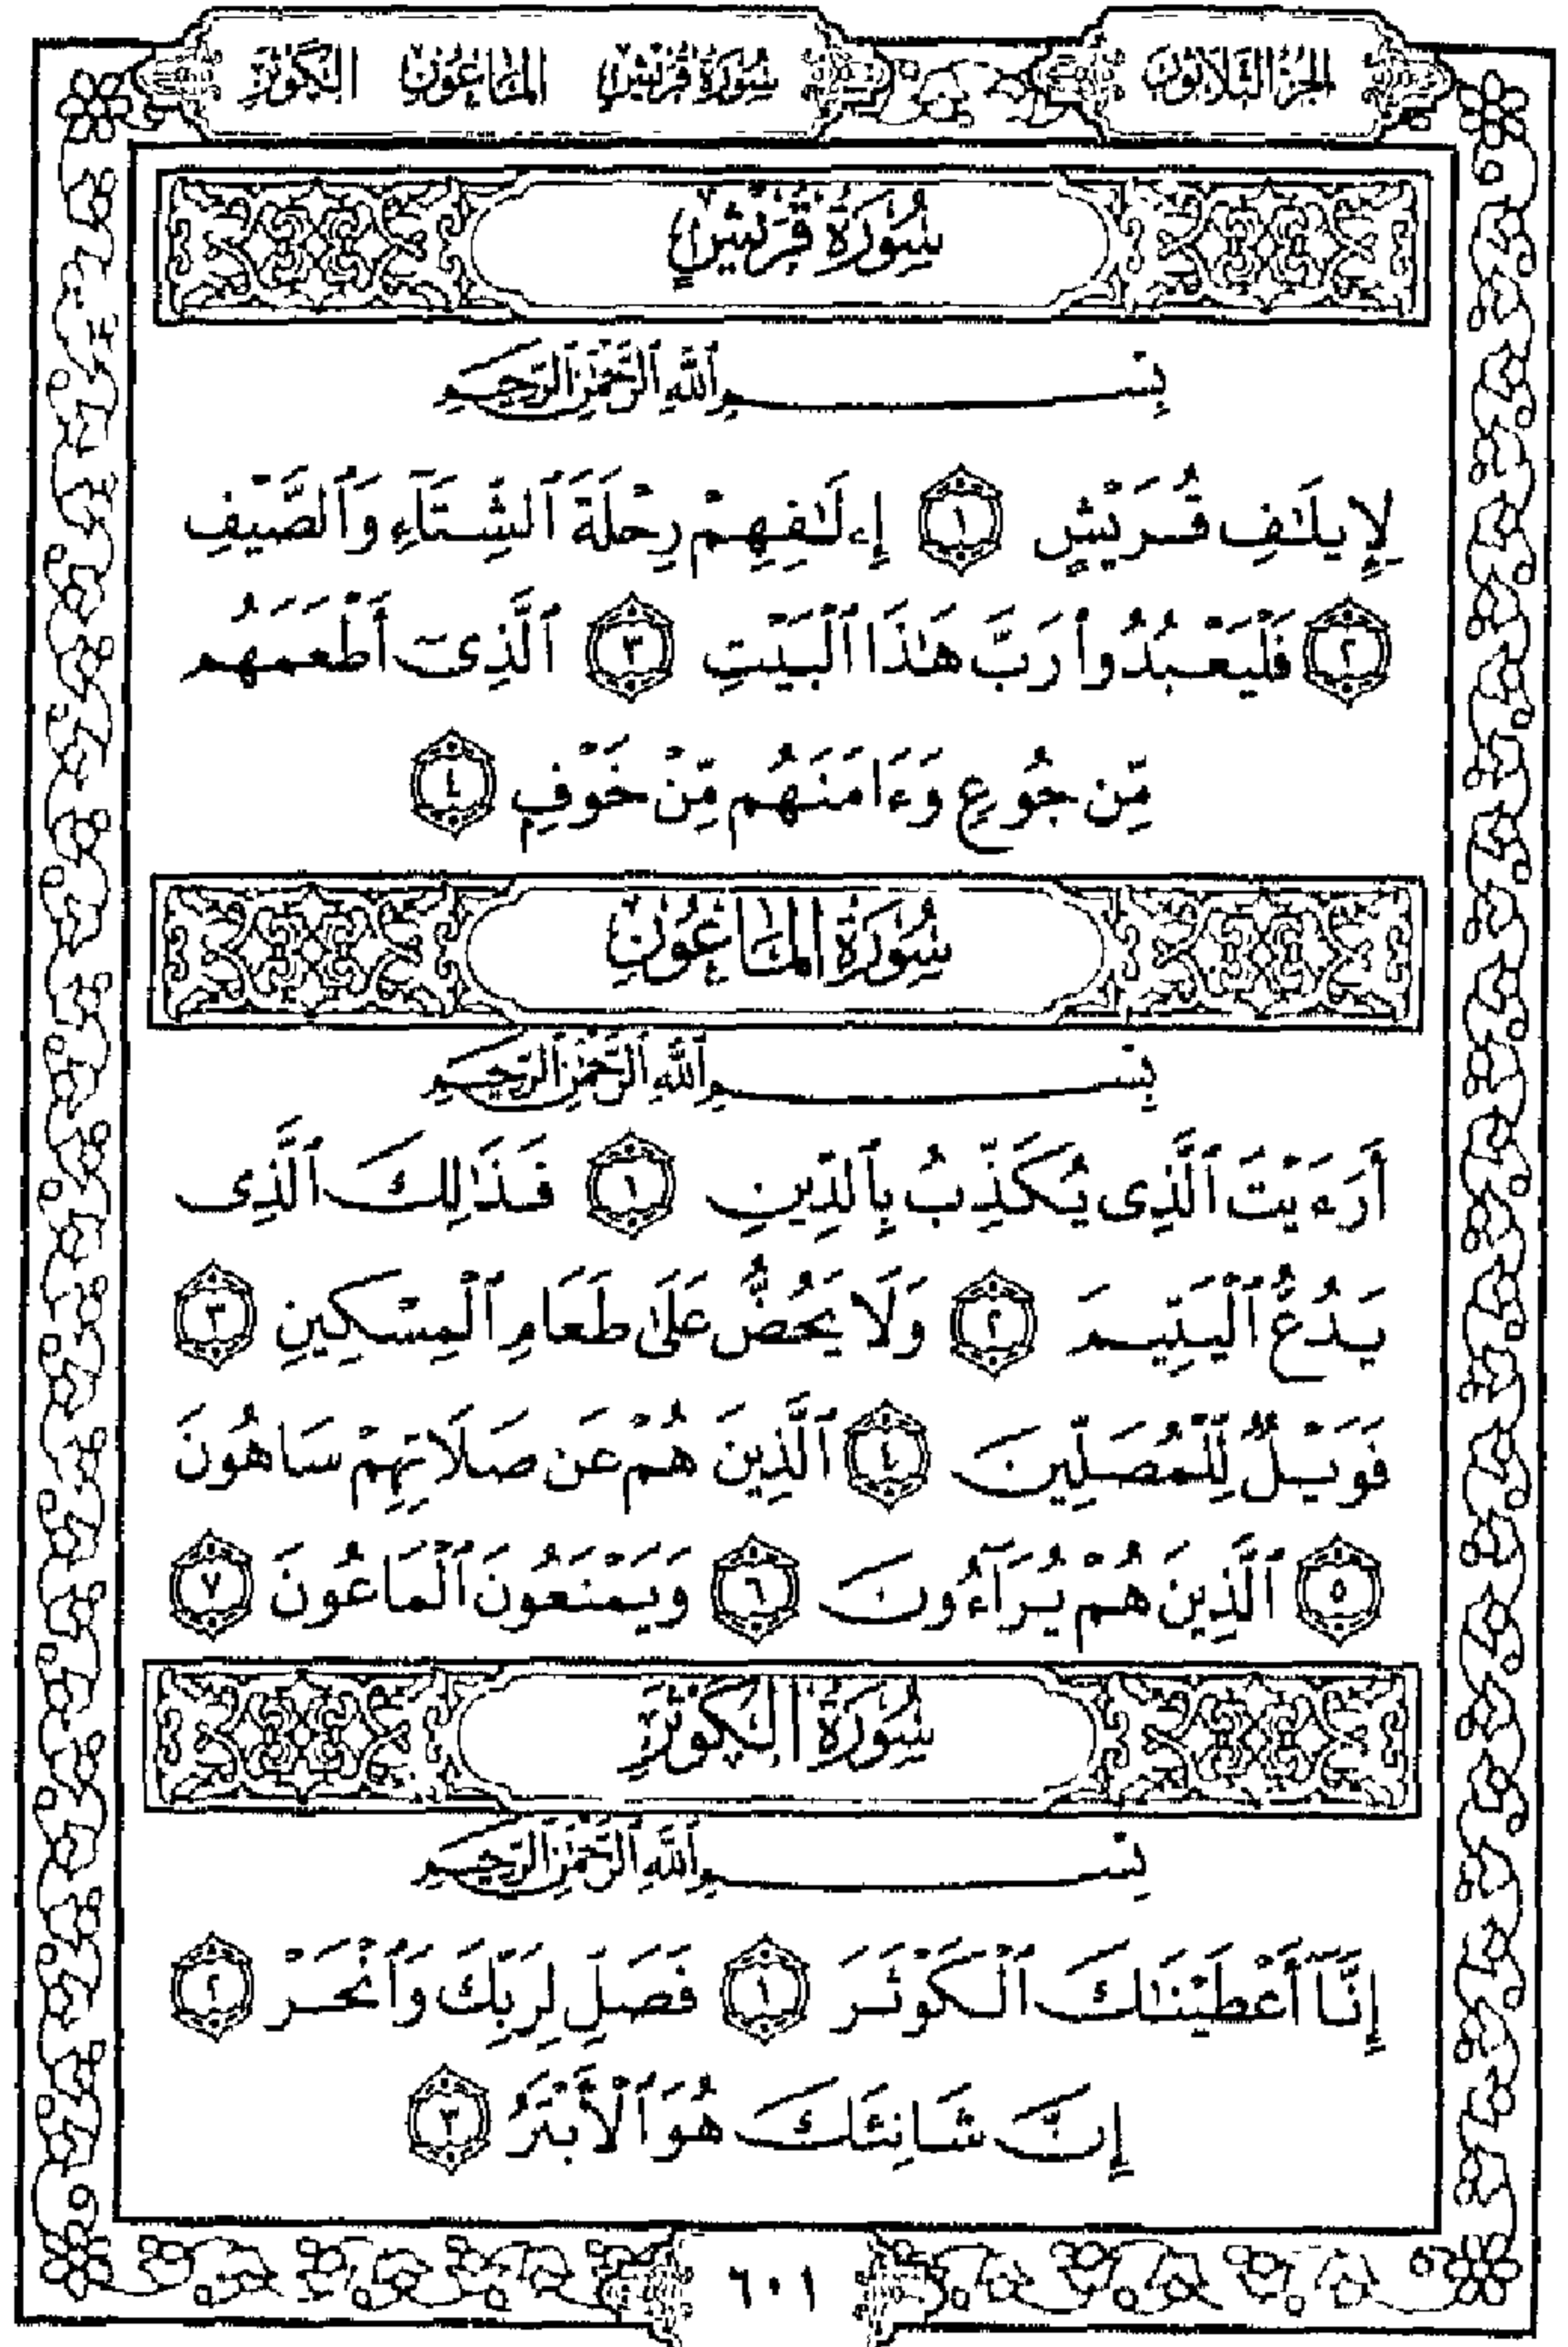 الجزء الثلاثون
سورة قريش الماعون الكوثر
سُورَةُ قُرَيْشٍ
بِسْمِ ٱللَّهِ ٱلرَّحْمَٰنِ ٱلرَّحِيمِ
لِإِيلَٰفِ قُرَيْشٍ ١ إِۦلَٰفِهِمْ رِحْلَةَ ٱلشِّتَآءِ وَٱلصَّيْفِ
٢ فَلْيَعْبُدُوا۟ رَبَّ هَٰذَا ٱلْبَيْتِ ٣ ٱلَّذِىٓ أَطْعَمَهُم
مِّن جُوعٍ وَءَامَنَهُم مِّنْ خَوْفٍ ٤
سُورَةُ المَاعُونِ
بِسْمِ ٱللَّهِ ٱلرَّحْمَٰنِ ٱلرَّحِيمِ
أَرَءَيْتَ ٱلَّذِى يُكَذِّبُ بِٱلدِّينِ ١ فَذَٰلِكَ ٱلَّذِى
يَدُعُّ ٱلْيَتِيمَ ٢ وَلَا يَحُضُّ عَلَىٰ طَعَامِ ٱلْمِسْكِينِ ٣
فَوَيْلٌ لِّلْمُصَلِّينَ ٤ ٱلَّذِينَ هُمْ عَن صَلَاتِهِمْ سَاهُونَ
٥ ٱلَّذِينَ هُمْ يُرَآءُونَ ٦ وَيَمْنَعُونَ ٱلْمَاعُونَ ٧
سُورَةُ الكَوْثَرِ
بِسْمِ ٱللَّهِ ٱلرَّحْمَٰنِ ٱلرَّحِيمِ
إِنَّآ أَعْطَيْنَٰكَ ٱلْكَوْثَرَ ١ فَصَلِّ لِرَبِّكَ وَٱنْحَرْ ٢
إِنَّ شَانِئَكَ هُوَ ٱلْأَبْتَرُ ٣
٦٠١